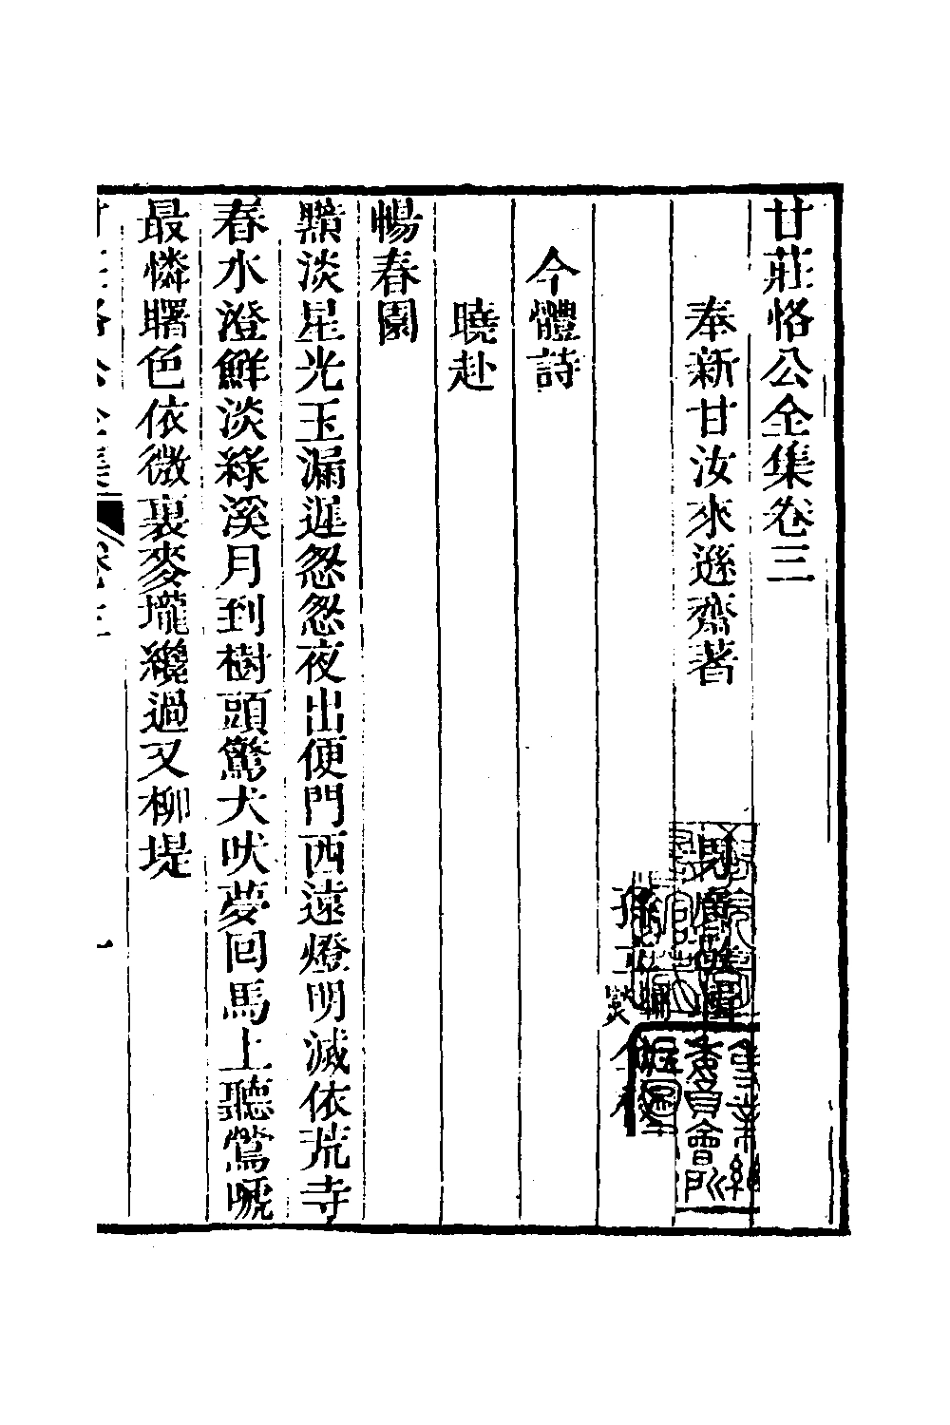 甘莊恪公全集卷三
奉新甘汝來遜齋著
孫
燮
今體詩
曉赴
暢春園
黯淡星光玉漏遲怱怱夜出便門西遠燈明滅依荒寺
春水澄鮮淡綠溪月到樹頭驚犬吠夢回馬上聽鶯嗁
最憐曙色依微裏麥壠纔過又柳堤